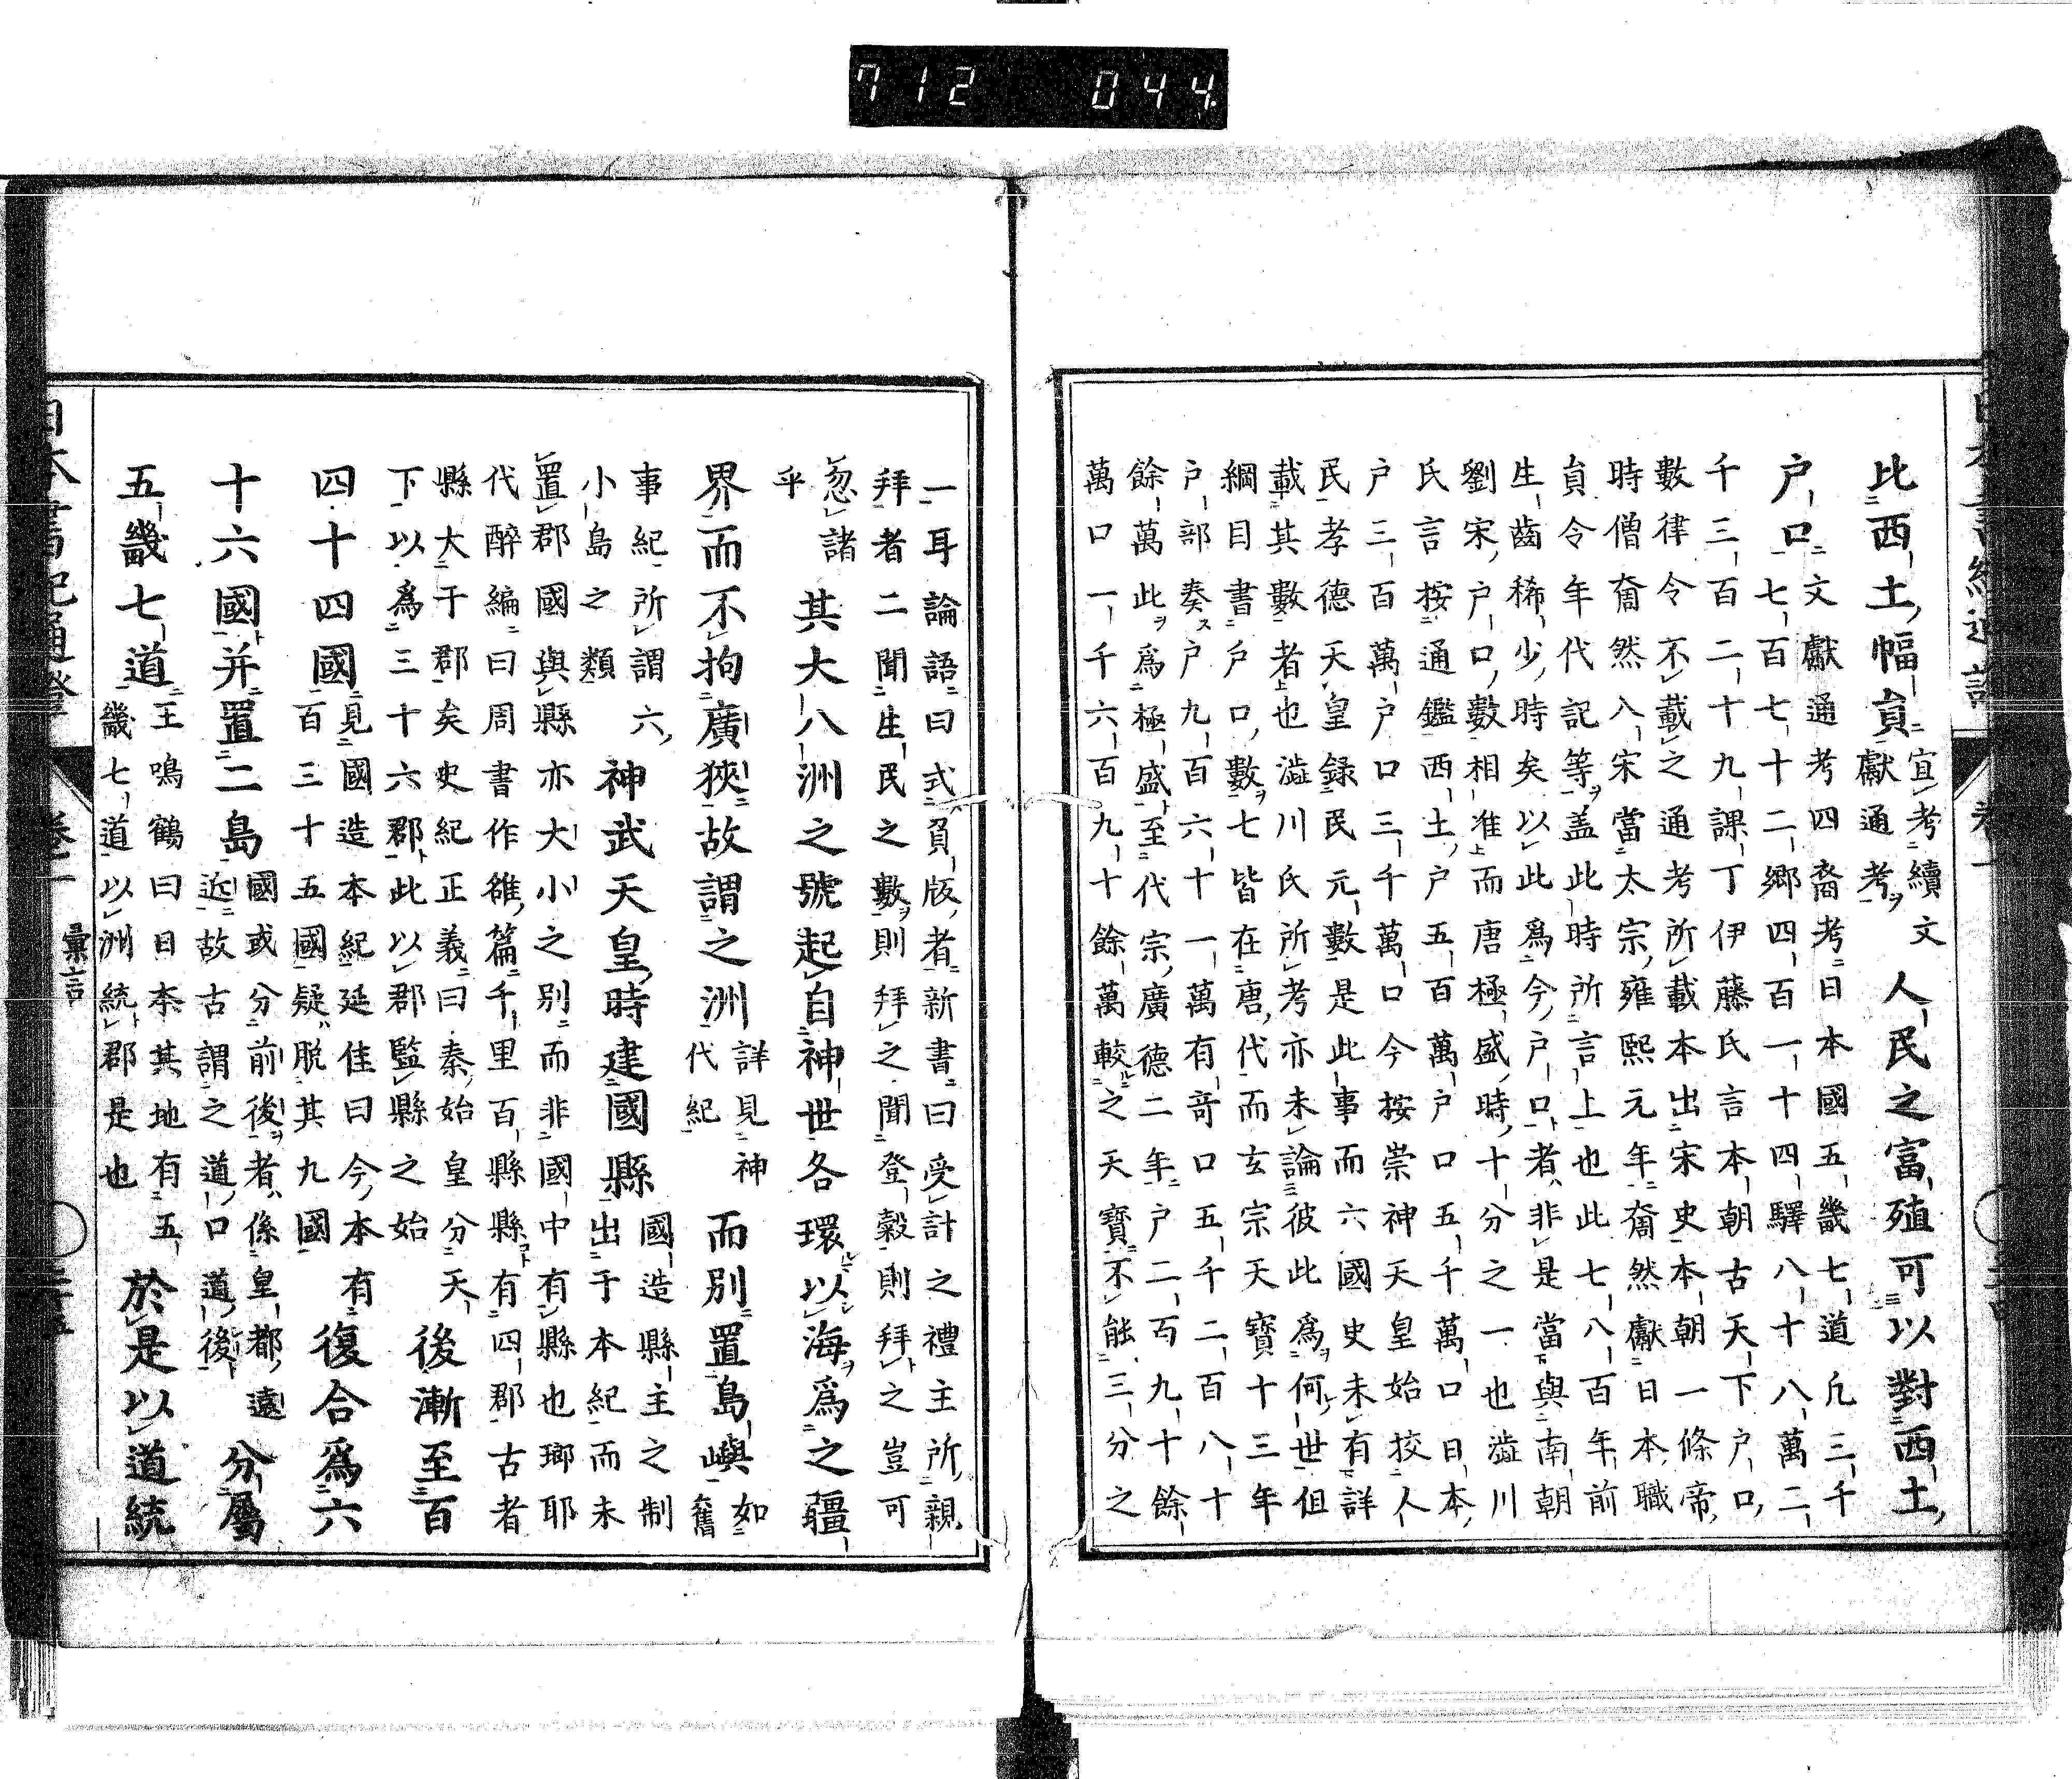 712 044
比西土幅員
宜考續文
獻通考
人民之富殖可以對西土
戶口
文獻通考四裔考曰本國五畿七道凡三千
七百七十二鄉四百一十四驛八十八萬二
千三百二十九課丁伊藤氏言本朝古天下戶口
數律令不載之通考所載本出宋史本朝一條帝
時僧奝然入宋當太宗雍熙元年奝然獻曰本職
貟令年代記等盖此時所言上也此七八百年前
生齒稀少時矣以此爲今戶口者非是當與南朝
劉宋戶口數相准而唐極盛時十分之一也澁川
氏言按通鑑西土戶五百萬戶口五千萬口日本
戶三百萬戶口三千萬口今按崇神天皇始挍人
民孝德天皇録民元數是此事而六國史未有詳
載其數者也澁川氏所考亦未論彼此爲何世但
綱目書戶口數七皆在唐代而玄宗天寶十三年
戶部奏戶九百六十一萬有竒口五千二百八十
餘萬此爲極盛至代宗廣德二年戶二百九十餘
萬口一千六百九十餘萬較之天寶不能三分之
一耳論語曰式負版者新書曰受計之禮主所親
拜者二聞生民之數則拜之聞登穀則拜之豈可
忽諸
乎
其大八洲之號起自神世各環以海爲之疆
界而不拘廣狹故謂之洲
詳見神
代紀
而別置島嶼
如
舊
事紀所謂六
小島之類
神武天皇時建國縣
國造縣主之制
出于本紀而未
置郡國與縣亦大小之別而非國中有縣也瑯耶
代醉編曰周書作雒篇千里百縣縣有四郡古者
縣大于郡矣史紀正義曰秦始皇分天
下以爲三十六郡此以郡監縣之始
後漸至百
四十四國
見國造本紀延佳曰今本有
百三十五國疑脱其九國
復合爲六
十六國并置二島
國或分前後者係皇都遠
近故古謂之道口道後
分屬
五畿七道
王鳴鶴曰日本其地有五
畿七道以洲統郡是也
於是以道統
日本書紀通證
卷一
彙言